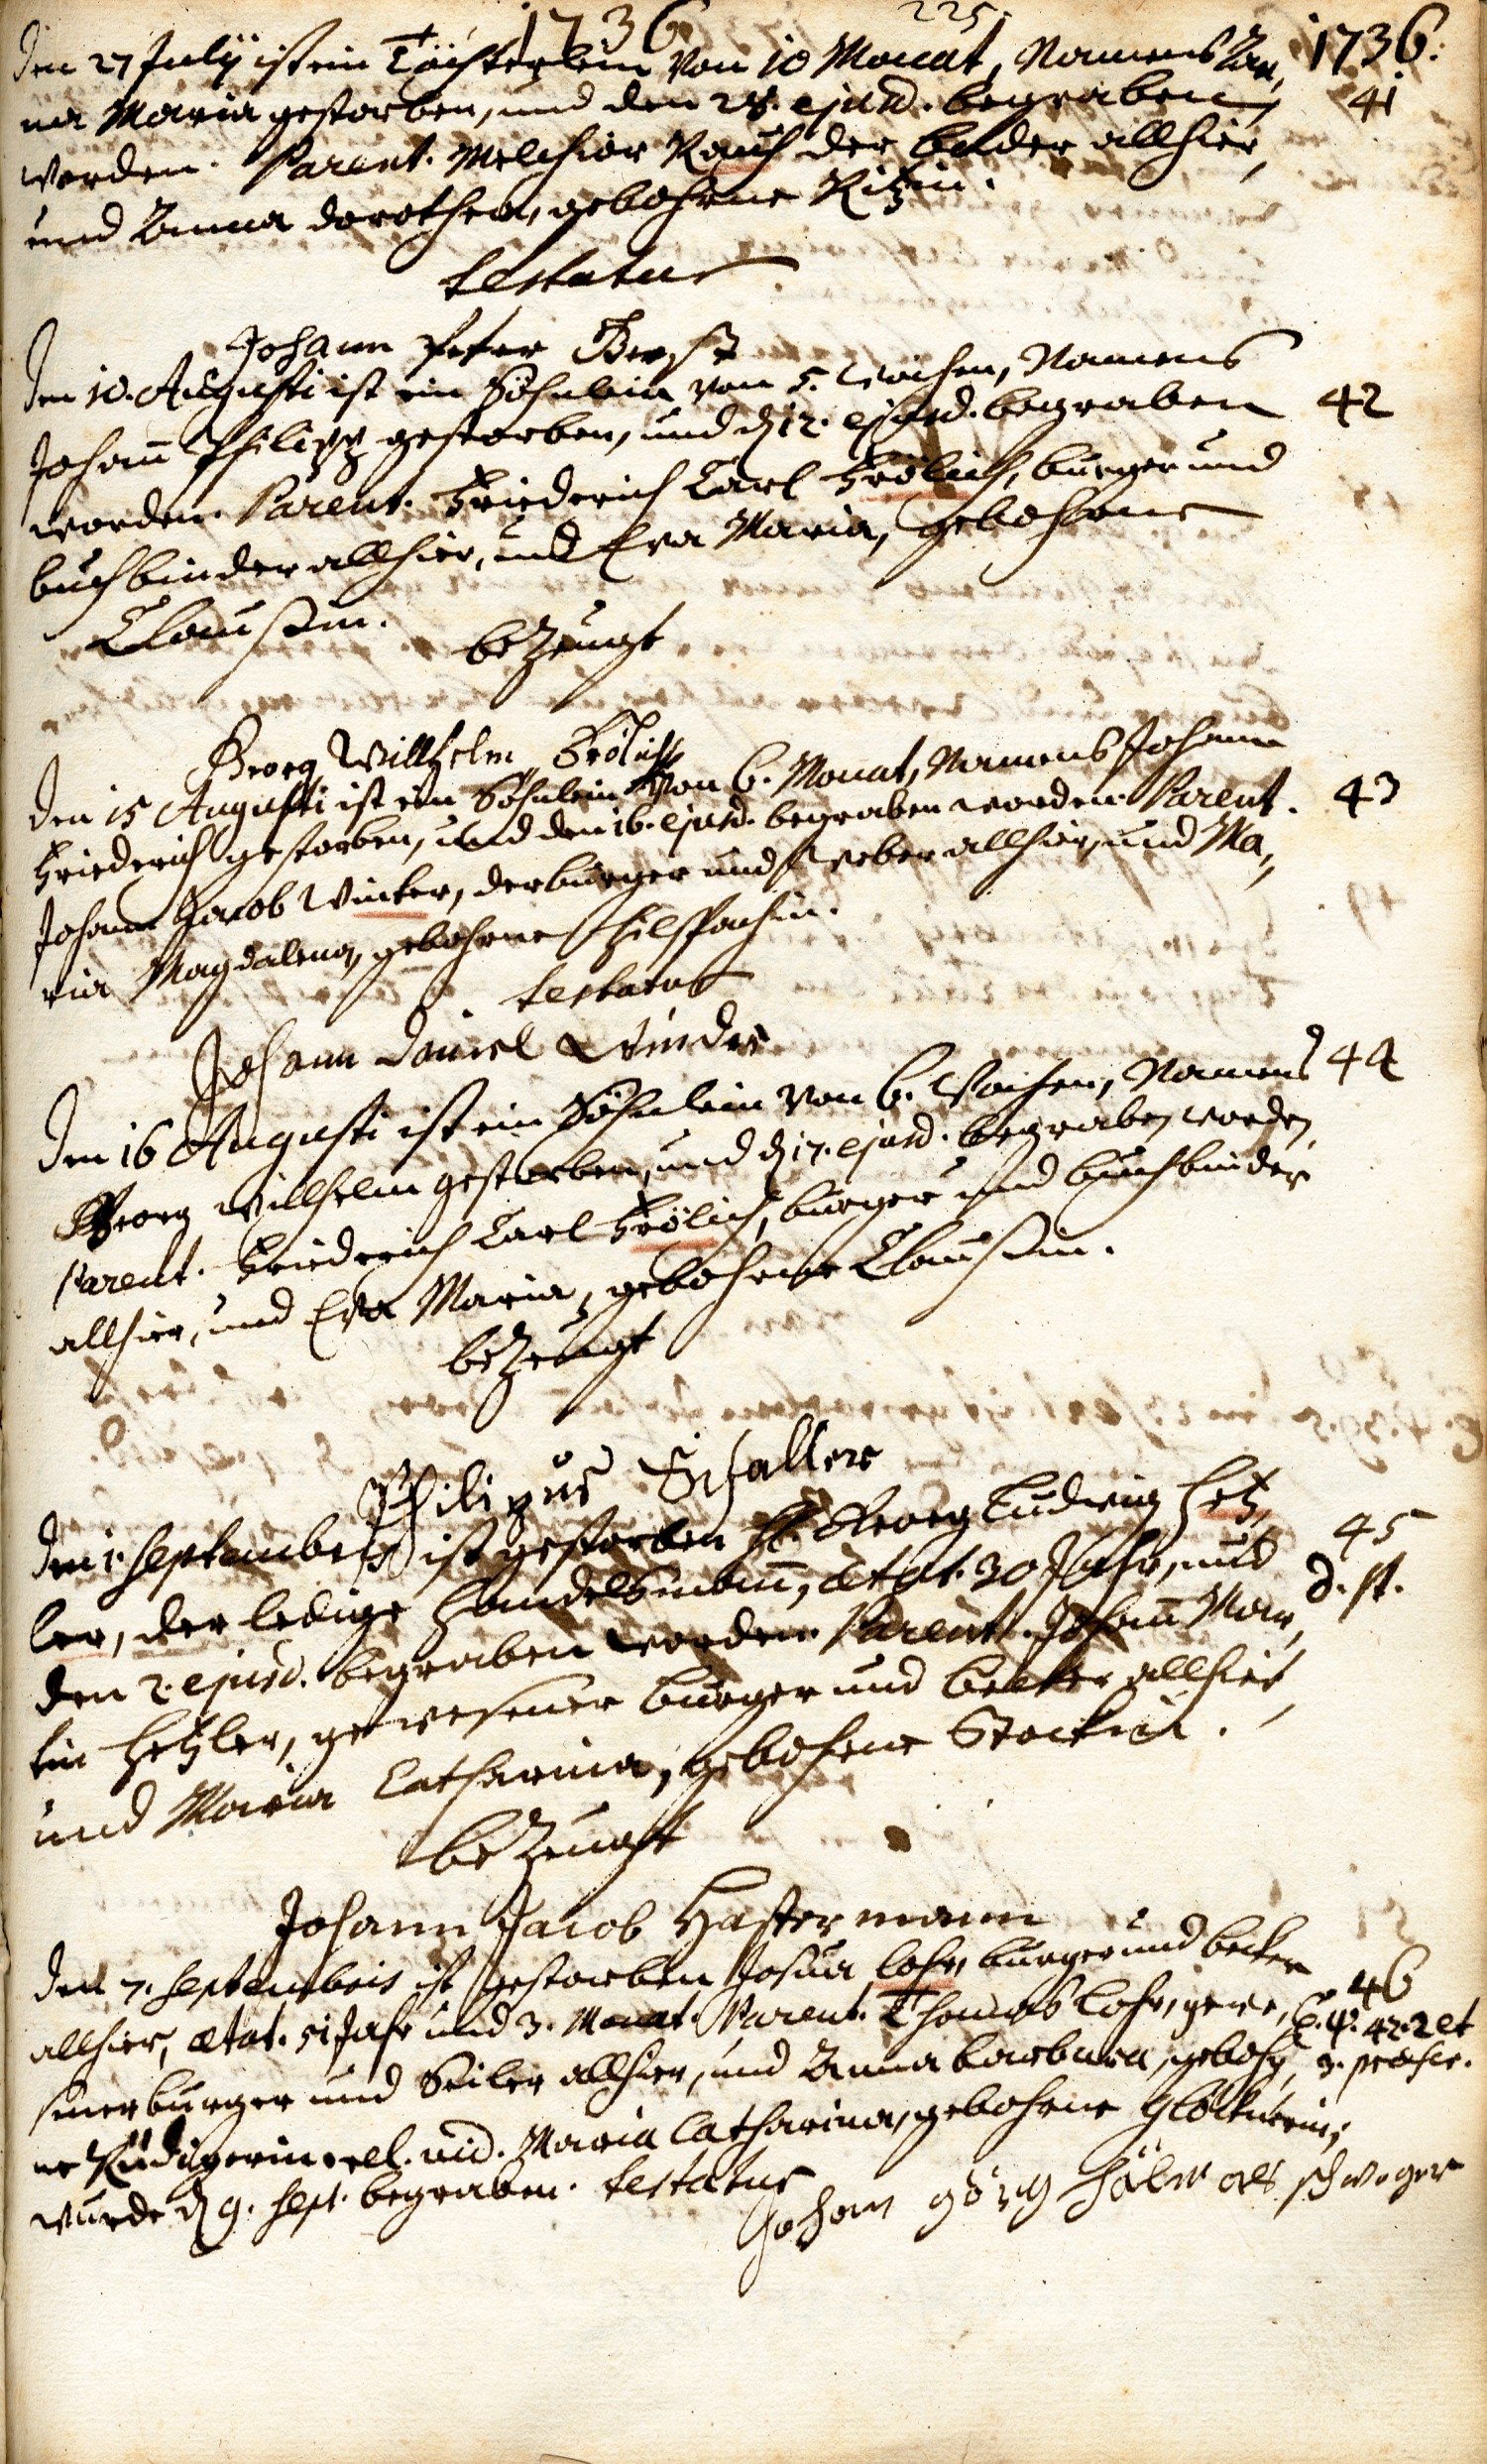 1736. 225. 1736.
Den 27 Julÿ ist ein Töchterlein von 10 Monat, Namens An,
na Maria gestorben, und den 28. ejusd. begraben 41
worden. Parent. Melchior Rauch der bader allhier,
und Anna Dorothea, gebohrne Ritzin.
testatur
Johann Peter
Den 10. Augusti ist ein Söhnlein von 5. Wochen, Namens
Johañ Philipp gestorben, und d 12. ejusd. begraben 42
worden. Parent. Friederich Carl Frölich, burger und
buchbinder allhier, und Eva Maria, gebohrne
Claußin. bezeugt
Georg Willhelm Frölich
Den 15 Augusti ist ein Söhnlein von 6. Monat, Namens Johann
Friederich gestorben, und den 16. ejusd. begraben worden. Parent. 43
Johann Jacob Winter, der burger und Weber allhier, und Ma,
ria Magdalena, gebohrne Hilspachin.
testatur
Johann Daniel
Den 16 Augusti ist ein Söhnlein von 6. Wochen, Namens 44
Georg Willhelm gestorben, und d 17. ejusd. begraben worden,
Parent. Friederich Carl Frölich, burger und buchbinder
allhier, und Eva Maria, gebohrne Claußin.
bezeugt
Philipus Schallere
Den 1. Septembris ist gestorben H. Georg Ludwig Hetz, 45
ler, der ledige Handelsmañ, ætat. 30 Jahr, und d. st.
den 2. ejusd. begraben worden. Parent. Johañ Mar,
tin Hetzler, gewesener burger und becker allhier,
und Maria Catharina, gebohrne Stockin.
bezeugt
Johann Jacob Hastermann
Den 7. Septembris ist gestorben Josua Lohr, burger und becker
allhier, ætat. 51 Jahr und 3. Monat. Parent. Thomas Lohr, gewe, 46
sener burger und Seiler allhier, und Anna barbara, gebohr, 42. 2 et
ne Rüdigerin rel. vid. Maria Catharina, gebohrne Glöcknerin,
wurde d 9. Sept. begraben. testatur
Johan görg als schwager